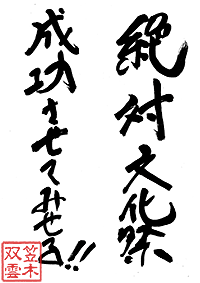 絶対文化祭
成功させてみせる!!
笠木
双雲